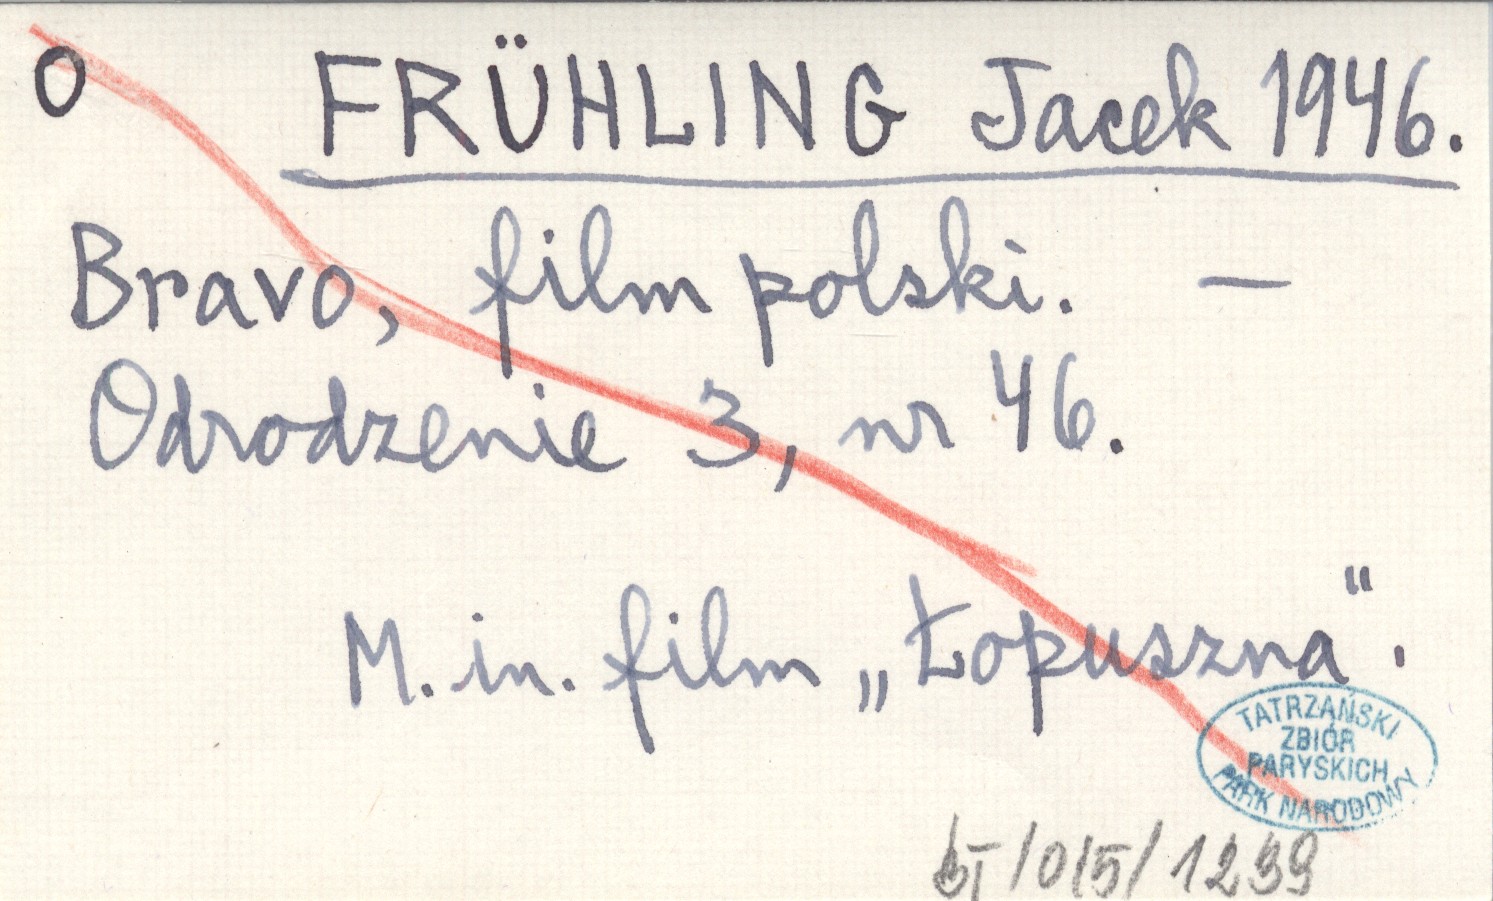 O FRÜHLING Jacek 1946.
Bravo, film polski. —
Odrodzenie 3, nr 46.
M. in. film „Łopuszna".
TATRZAŃSKI
ZBIÓR
PARYSKICH
PARK NARODOWY
/015/1239